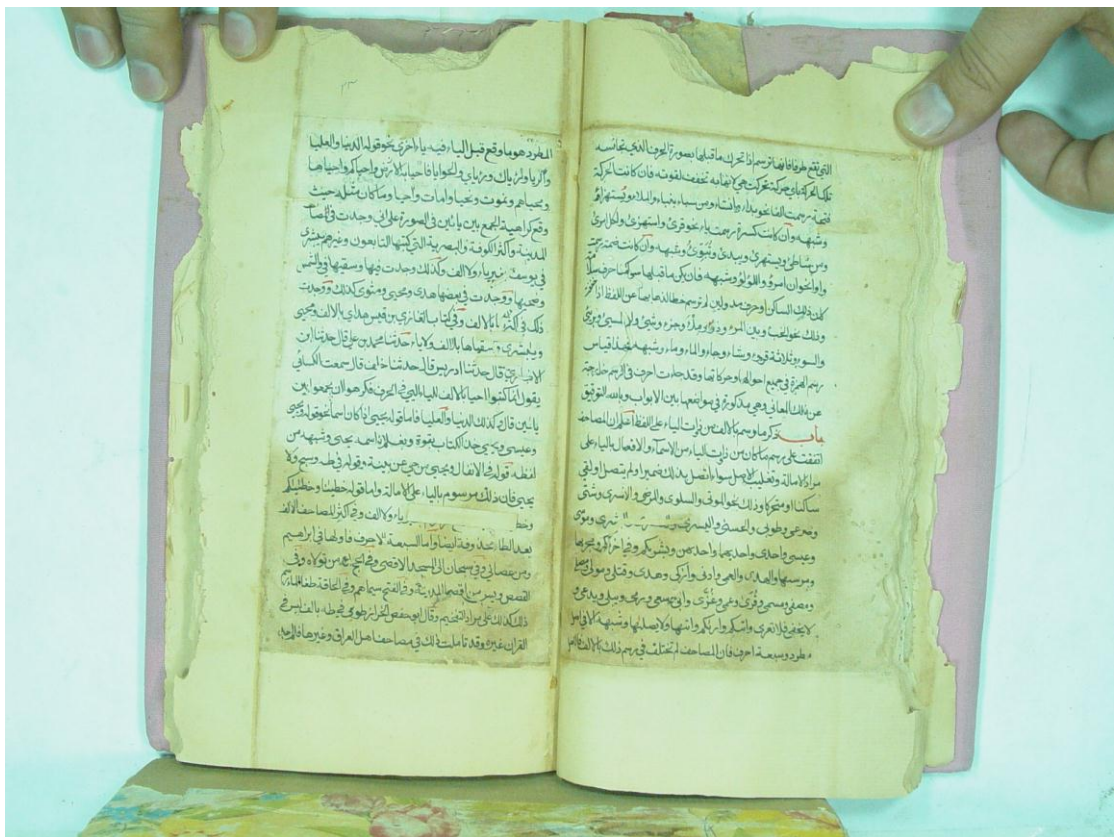 التي تقع طرفا فانها ترسم اذا تحرك ما قبلها بصورة الحرف الذي منه
تلك الحركة باي حركة تحركت هي لانها به تخفف لقوته فان كانت الحركة
فتحة رسمت الفا نحو بدا وانشا ومن سبا بنبا والملا ويستهزا
وشبهه وان كانت كسرة رسمت ياء نحو قرئ واستهزئ ولكل امرئ
ومن شاطئ ويستهزئ ويبدئ وشبهه وان كانت ضمة رسمت
واوا نحو ان امرؤ واللؤلؤ وشبهه فان سكن ما قبلها حرف سلامة
كان ذلك الساكن او حرف مد ولين لم ترسم خطا لذهابها من اللفظ اذا خففت
وذلك نحو الخبء وبين المرء ودفء وملء وجزء وشيء ولا المسيء وبريء
والسوء وثلثة قروء ويشاء وجاء والماء وماء وشبهه فهذا قياس
رسم الهمزة في جميع احوالها وحركاتها وقد جاءت احرف في الرسم خارجة
عن ذلك لمعان وهي مذكورة في مواضعها بين الابواب وبالله التوفيق
باب ذكر ما رسم بالالف من ذوات الياء على اللفظ اعلم ان المصاحف
اتفقت على رسم ما كان من ذوات الياء من الاسماء والافعال بالياء على
مراد الامالة وتغليب الاصل سواء اتصل بذلك ضمير او لم يتصل او لقي
ساكنا او متحركا وذلك نحو الموتى والسلوى والمرضى والاسرى وشتى
وصرعى وطوبى والحسنى واليسرى والبشرى وموسى
وعيسى واحدى واحديهما واحديهن وبشريكم وفي اخريكم ومجريها
ومرسيها والهدى والعمى وادنى وازكى وهدى وقتلى ومولى
ومصفى ومسمى وقرى وعمى وغزى واتى وسعى ورمى ويتلى ويدعى و
لا يخفى فلا تعرى واتيكم واريكم واتيها ولا يصليها وشبهه الا في اصل
مطرد وسبعة احرف فان المصاحف لم تختلف في رسم ذلك بالالف فالاصل
المطرد هو ما وقع قبل الياء فيه ياء اخرى نحو قوله الدنيا والعليا
والرءيا ورءياك ورءياي والحوايا فاحيا به الارض واحياكم واحياها
ومحياهم ونموت ونحيا وامات واحيا وما كان مثله حيث
وقع كراهية الجمع بين يائين في الصورة على اني وجدت في المصاحف
المدينة واكثر الكوفية والبصرية التي كتبها التابعون وغيرهم يبشرى
في يوسف بغير ياء ولا الف وكذلك وجدت فيها وسقيها في والشمس
وضحيها ووجدت في بعضها هدى ومحيى ومثوى كذلك ووجدت
ذلك في اكثرها بالالف وفي كتاب الغازي بن قيس هداي بالالف ومحيى
ويبشرى وسقياها بالالف ولا ياء حدثنا محمد بن علي قال حدثنا ابن
الانباري قال حدثنا ادريس قال حدثنا خلف قال سمعت الكسائي
يقول انما كتبوا احيا بالالف للياء التي في الحرف فكرهوا ان يجمعوا بين
يائين قال وكذلك الدنيا والعليا فاما قوله يحيى اذا كان اسما نحو قوله ويحيى
وعيسى ويا يحيى خذ الكتاب بقوة وبغلام اسمه يحيى وشبهه من
لفظه قوله في الانفال ويحيى من حي عن بينة وقوله في طه وسبح ولا
يحيى فان ذلك مرسوم بالياء على الامالة واما قوله خطينا وخطيكم
وخط ياء ولا الف وفي اكثر المصاحف الالف
بعد الطاء محذوفة ايضا واما السبعة الاحرف فاولها في ابراهيم
ومن عصاني وفي سبحان الى المسجد الاقصى وفي الحج من تولاه وفي
القصص ويس من اقصا المدينة وفي الفتح سيماهم وفي الحاقة طغا الماء
ذلك كذلك على مراد التفخيم وقال ابو حفص الخزاز طوى في طه بالف ليس في
القران غيره وقد تاملت ذلك في مصاحف اهل العراق وغيرها فلم اجد